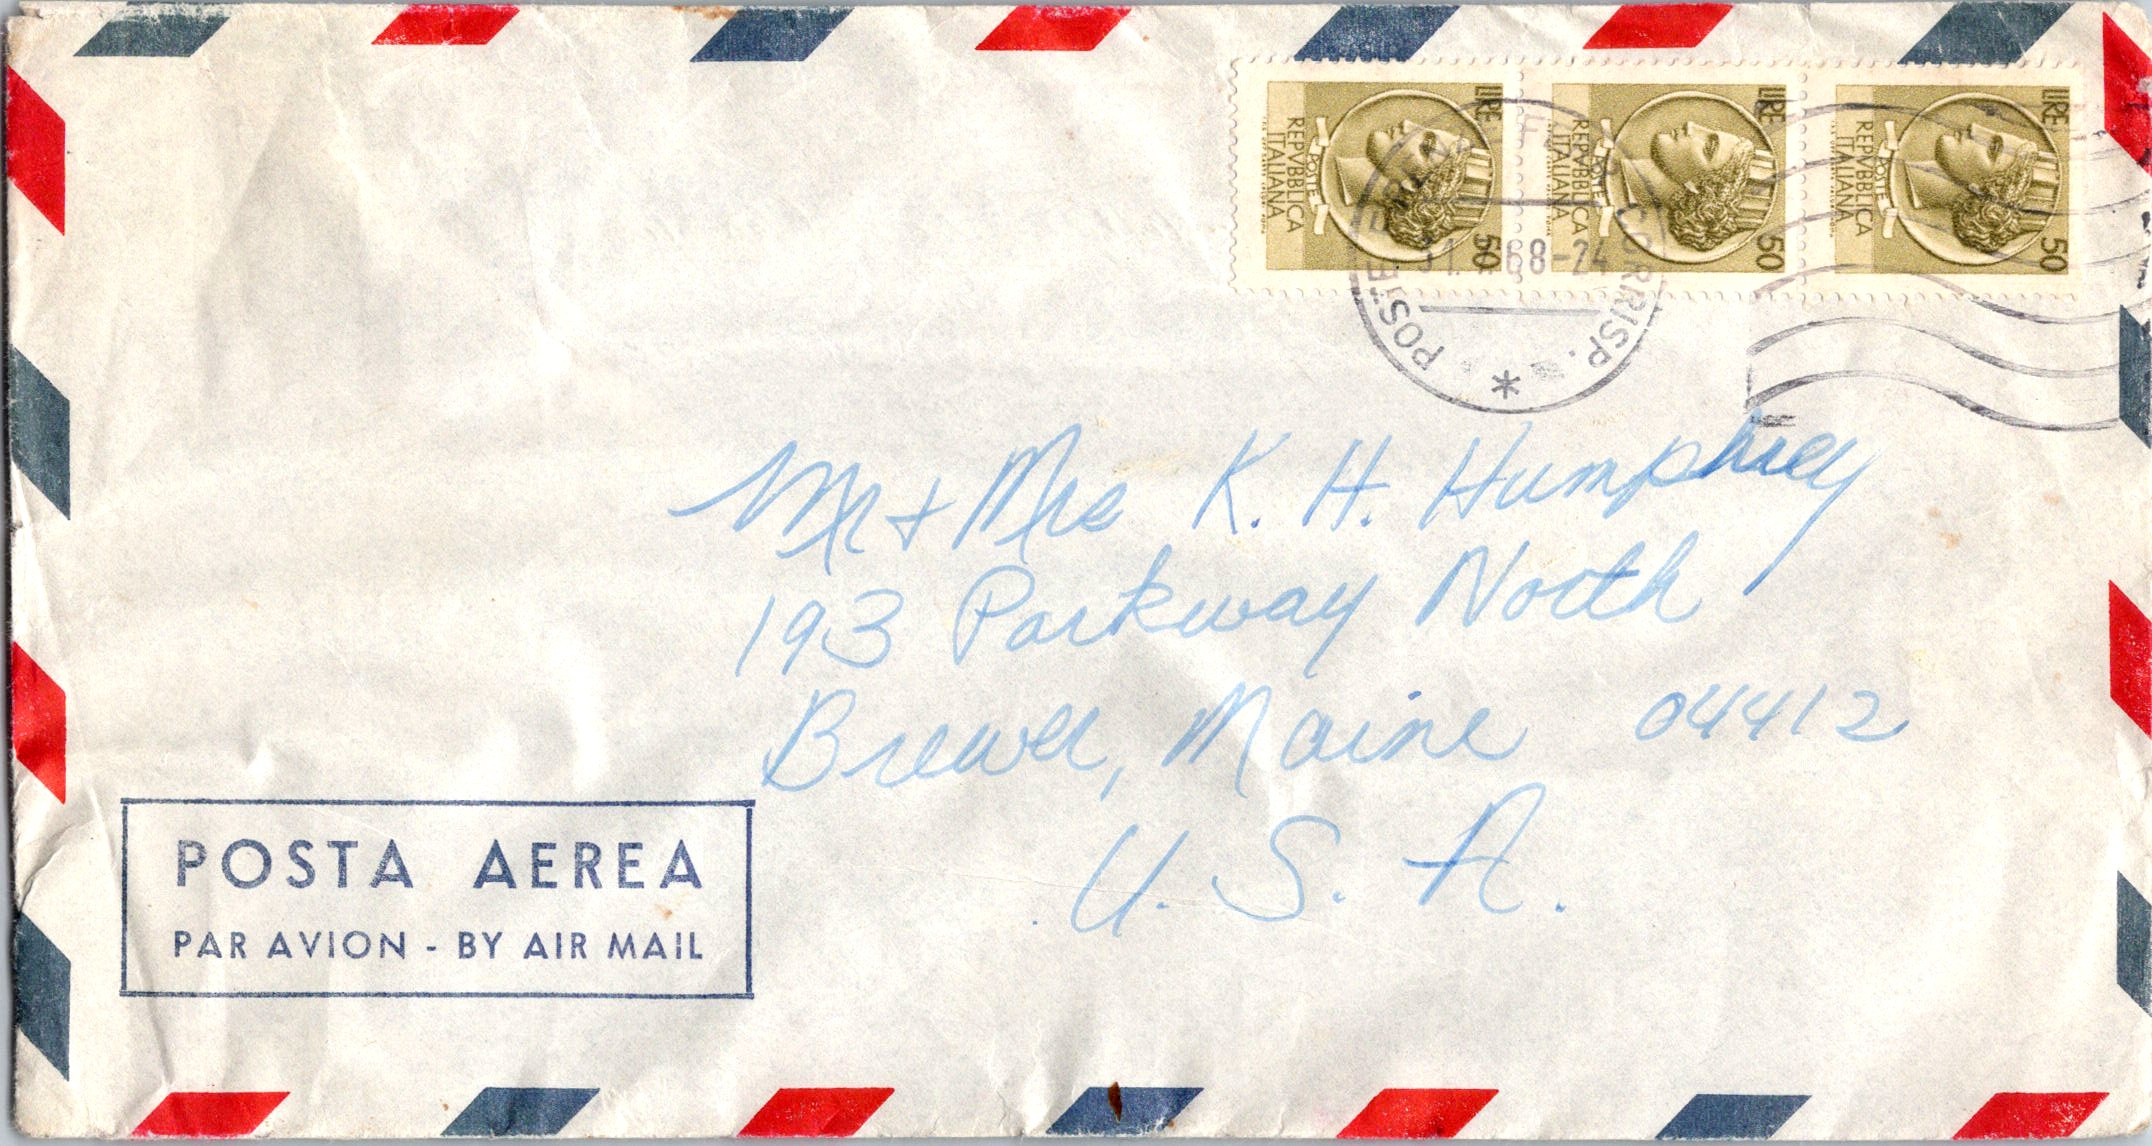 LIRE 50
REPVBBLICA
ITALIANA
POSTE
LIRE 50
REPVBBLICA
ITALIANA
POSTE
LIRE 50
REPVBBLICA
ITALIANA
POSTE
POSTE CORRISP.
68-24
*
Mr + Mrs K. H. Humphrey
193 Parkway North
Brewer, Maine 04412
U. S. A.
POSTA AEREA
PAR AVION - BY AIR MAIL